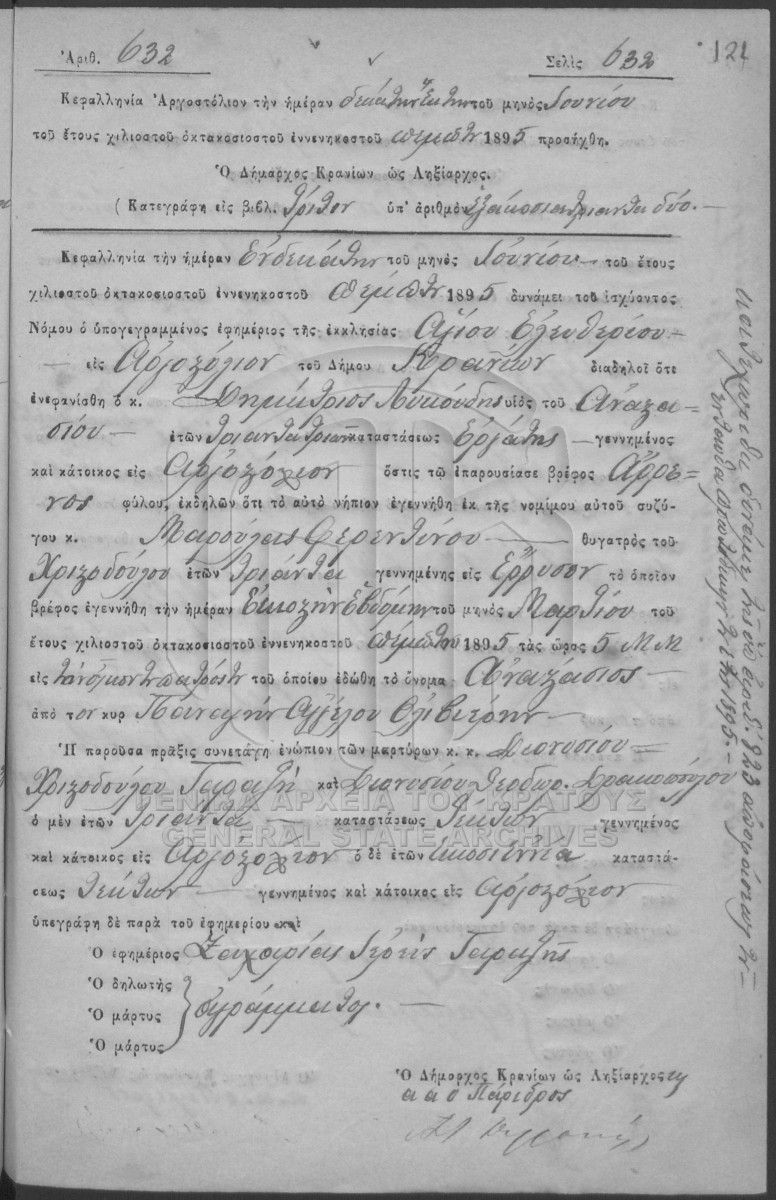 Ἀριθ. 632 Σελὶς 632 121
Κεφαλληνία Ἀργοστόλιον τὴν ἡμέραν δεκάτην ἕκτην τοῦ μηνὸς Ἰουνίου
τοῦ ἔτους χιλιοστοῦ ὀκτακοσιοστοῦ ἐννενηκοστοῦ πέμπτου 1895 προσήχθη.
Ὁ Δήμαρχος Κρανίων ὡς Ληξίαρχος.
( Κατεγράφη εἰς βιβλ. τρίτον ὑπ' ἀριθμὸν ἑξακόσια τριάντα δύο. —
Κεφαλληνία τὴν ἡμέραν Ἑνδεκάτην τοῦ μηνὸς Ἰουνίου — τοῦ ἔτους
χιλιοστοῦ ὀκτακοσιοστοῦ ἐννενηκοστοῦ πέμπτου 1895 δυνάμει τοῦ ἰσχύοντος
Νόμου ὁ ὑπογεγραμμένος ἐφημέριος τῆς ἐκκλησίας Ἁγίου Ἐλευθερίου —
— εἰς Ἀργοστόλιον τοῦ Δήμου Κρανίων διαδηλοῖ ὅτι
ἐνεφανίσθη ὁ κ. Δημήτριος Λυκούδης υἱὸς τοῦ Ἀναστα=
σίου — ἐτῶν τριάντα τριῶν καταστάσεως Ἐργάτης — γεννημένος
καὶ κάτοικος εἰς Ἀργοστόλιον ὅστις τῷ ἐπαρουσίασε βρέφος Ἄρρε=
νος φύλου, ἐκδηλῶν ὅτι τὸ αὐτὸ νήπιον ἐγεννήθη ἐκ τῆς νομίμου αὐτοῦ συζύ-
γου κ. Μαρούλας Φερεντίνου — θυγατρὸς τοῦ
Χριστοδούλου ἐτῶν τριάντα γεννημένης εἰς Ἔρρυσον τὸ ὁποῖον
βρέφος ἐγεννήθη τὴν ἡμέραν Εἰκοστὴν Ἑβδόμην τοῦ μηνὸς Μαρτίου τοῦ
ἔτους χιλιοστοῦ ὀκτακοσιοστοῦ ἐννενηκοστοῦ πέμπτου 1895 τὰς ὥρας 5 Μ Μ
εἰς τοῦ ὁποίου ἐδώθη τὸ ὄνομα Ἀναστάσιος —
ἀπὸ τον κυρ Παναγῆν Ἀγγέλου Ὀλιβιέρην —
Ἡ παροῦσα πρᾶξις συνετάγη ἐνώπιον τῶν μαρτύρων κ. κ. Διονυσίου —
Χριστοδούλου Γαρατζῆ καὶ Διονυσίου Θεοδωρ. Δρακοπούλου
ὁ μὲν ἐτῶν Τριάντα — καταστάσεως Τέκτων γεννημένος
καὶ κάτοικος εἰς Ἀργοστόλιον ὁ δὲ ἐτῶν εἰκοσιεννέα καταστά-
σεως Τέκτων — γεννημένος καὶ κάτοικος εἰς Ἀργοστόλιον
ὑπεγράφη δὲ παρὰ τοῦ ἐφημερίου καὶ
Ὁ ἐφημέριος Ζαχαρίας Ἱερεὺς Γαρατζῆς
Ὁ δηλωτὴς
Ὁ μάρτυς ἀγράμματοι. —
Ὁ μάρτυς
Ὁ Δήμαρχος Κρανίων ὡς Ληξίαρχος
α α ὁ Πάρεδρος
ΓΕΝΙΚΑ ΑΡΧΕΙΑ ΤΟΥ ΚΡΑΤΟΥΣ
GENERAL STATE ARCHIVES